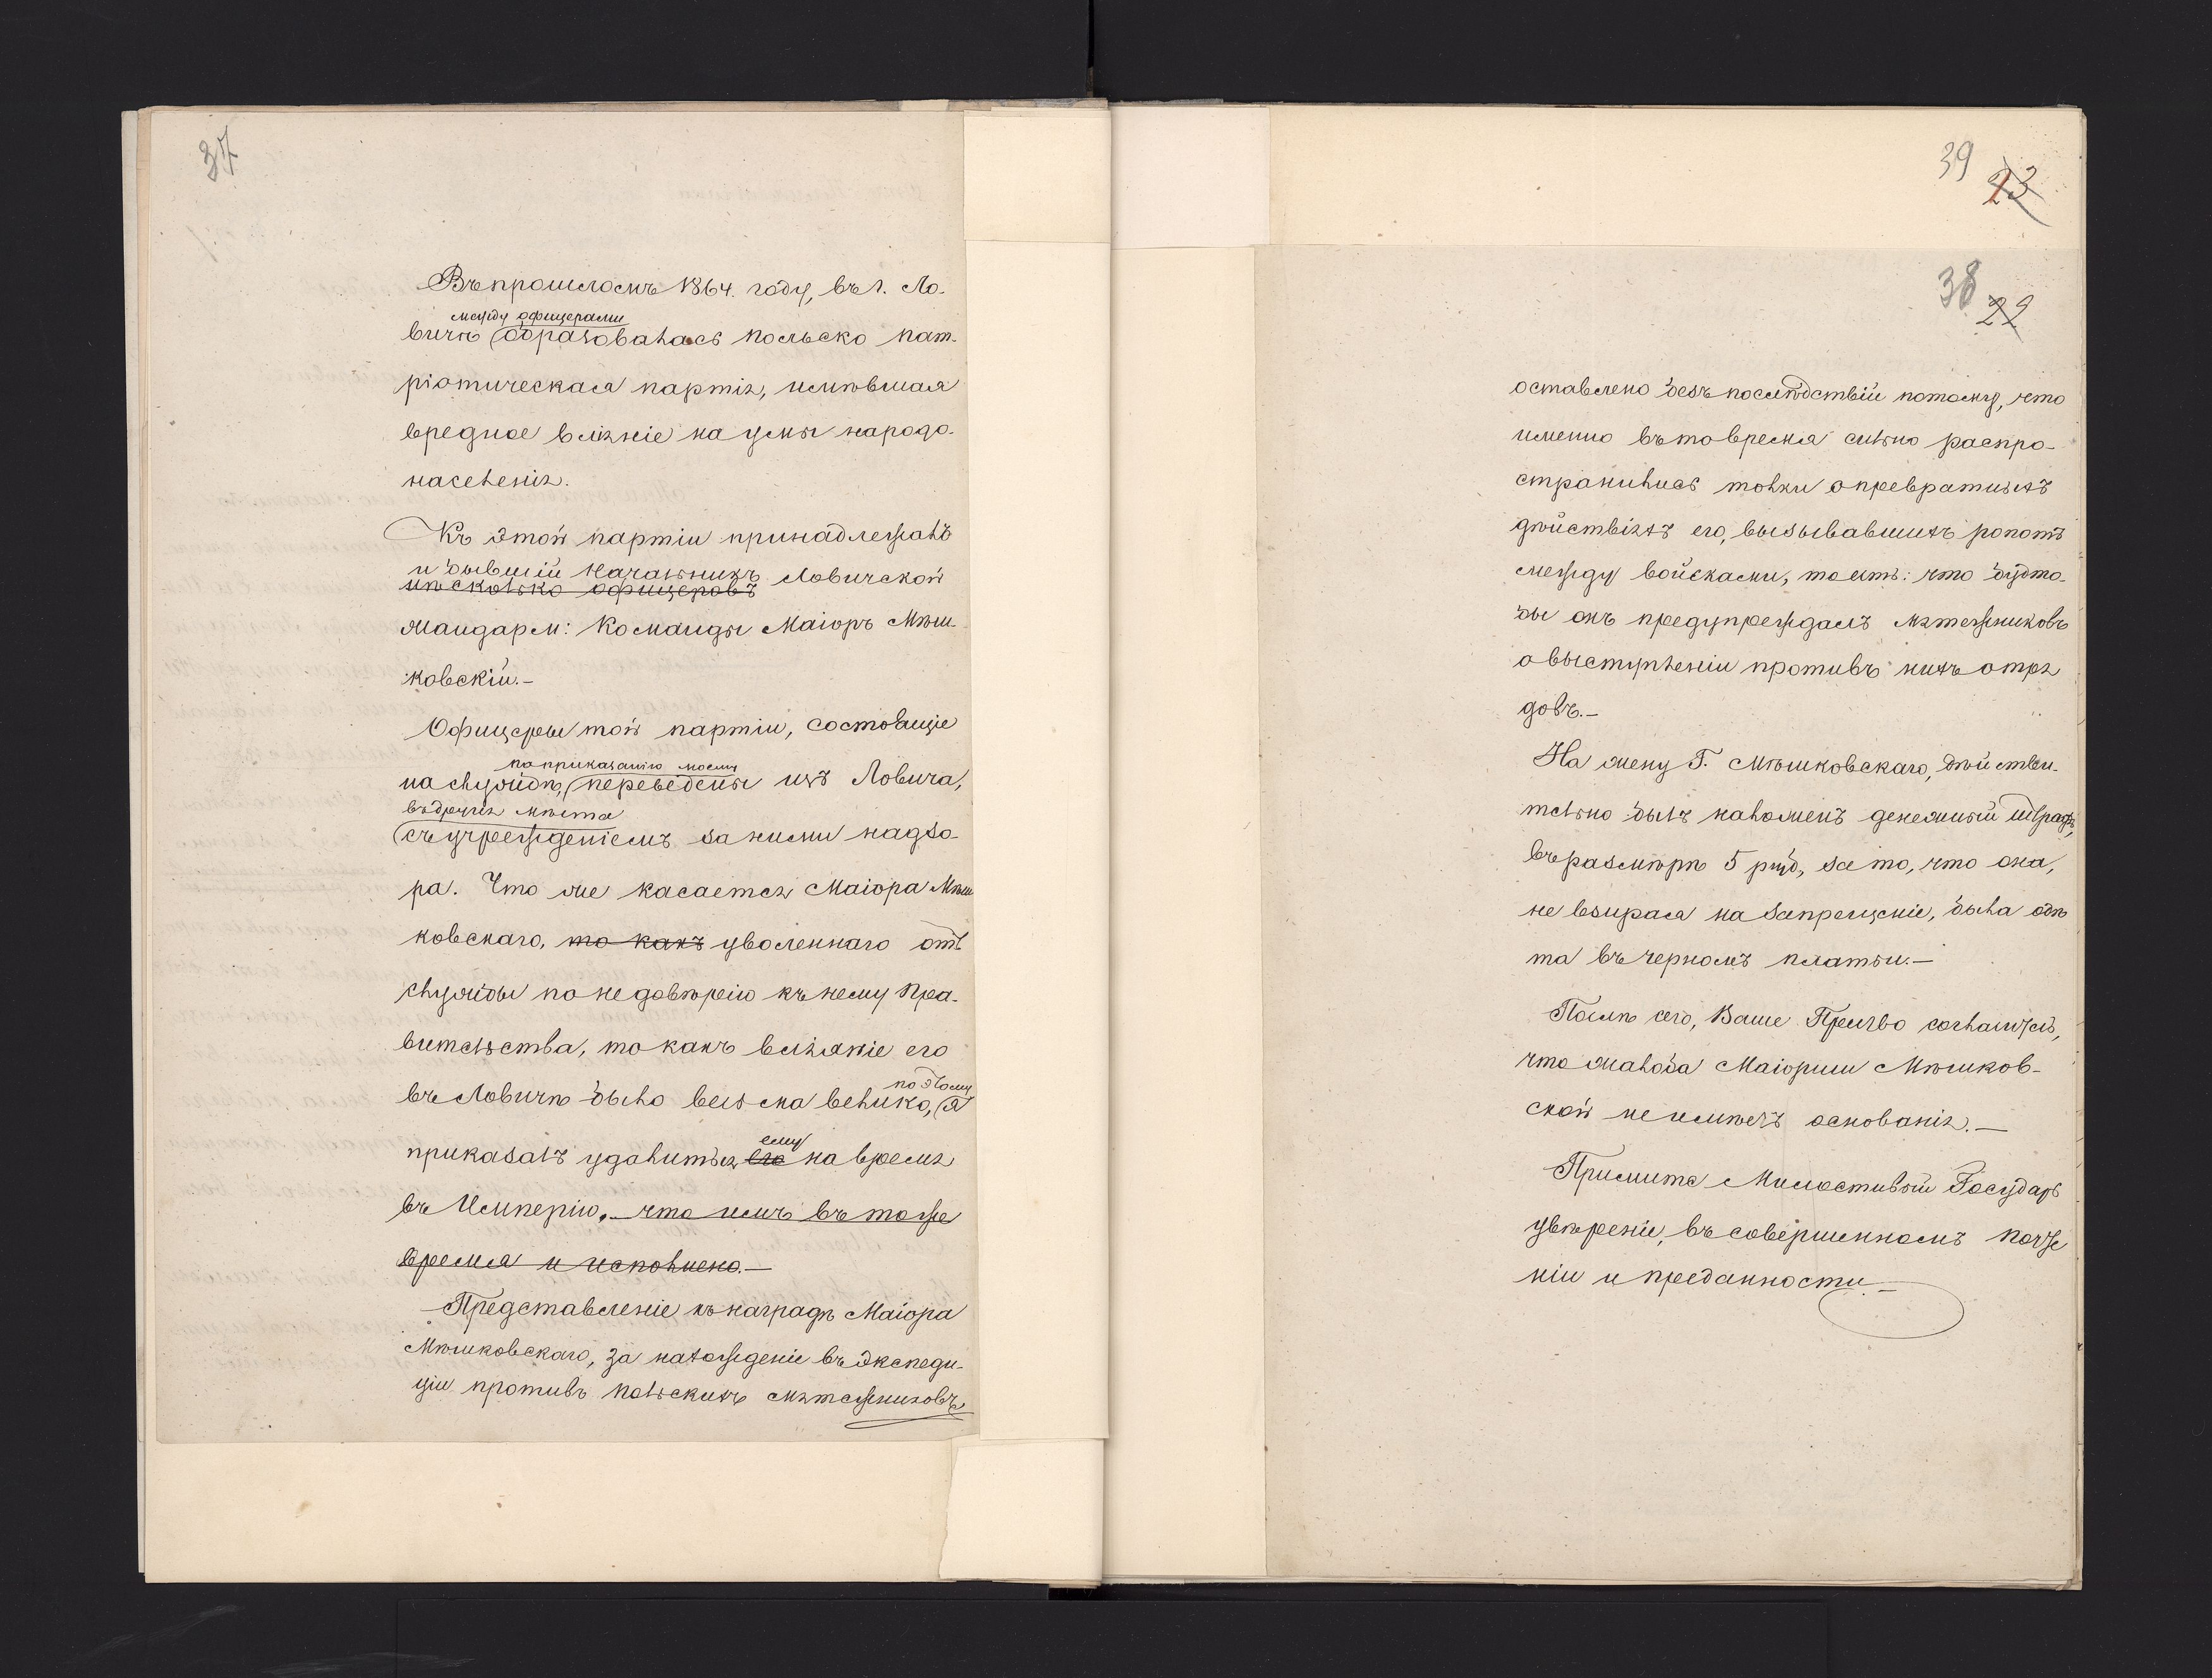 37
Въ прошломъ 1864. году, въ г. Ло-
между офицерами
вичѣ образовалась польско пат-
ріотическая партія, имѣвшая
вредное вліяніе на умы народо-
населенія.
Къ этой партіи принадлежалъ
и бывшій Начальникъ Ловичской
нѣсколько офицеровъ
жандарм: Команды Маіоръ Мѣш-
ковскій.-
Офицеры той партіи, состоящіе
по приказанію моему
на службѣ, переведены изъ Ловича,
въ другія мѣста
съ учрежденіемъ за ними надзо-
ра. Что же касается Маіора Мѣш
ковскаго, то какъ уволеннаго отъ
службы по недовѣрію къ нему Пра-
вительства, то какъ вліяніе его
по этому
въ Ловичѣ было весьма велико, я
ему
приказалъ удалиться его на время
въ Имперію, что имъ въ тоже
время и исполнено.-
Представленіе къ наградѣ Маіора
Мѣшковскаго, за нахожденіе въ экспеди-
ціи противъ польскихъ мятежниковъ
39
23
38
22
оставлено безъ послѣдствій потому, что
именно въ то время сильно распро-
странились толки о превратныхъ
дѣйствіяхъ его, вызывавшихъ ропотъ
между войсками, то есть: что будто-
бы онъ предупреждалъ мятежниковъ
о выступленіи противъ нихъ отря
довъ.-
На жену Г. Мѣшковскаго, дѣйстви-
тельно былъ наложенъ денежный штрафъ,
въ размѣрѣ 5 руб, за то, что она,
не взирая на запрещеніе, была одѣ
та въ черномъ платьи.-
Послѣ сего, Ваше Пре-во согласитесь,
что жалоба Маіорши Мѣшков-
ской не имѣетъ основанія.-
Примите Милостивый Государь
увѣреніе, въ совершенномъ почте
ніи и преданности.-